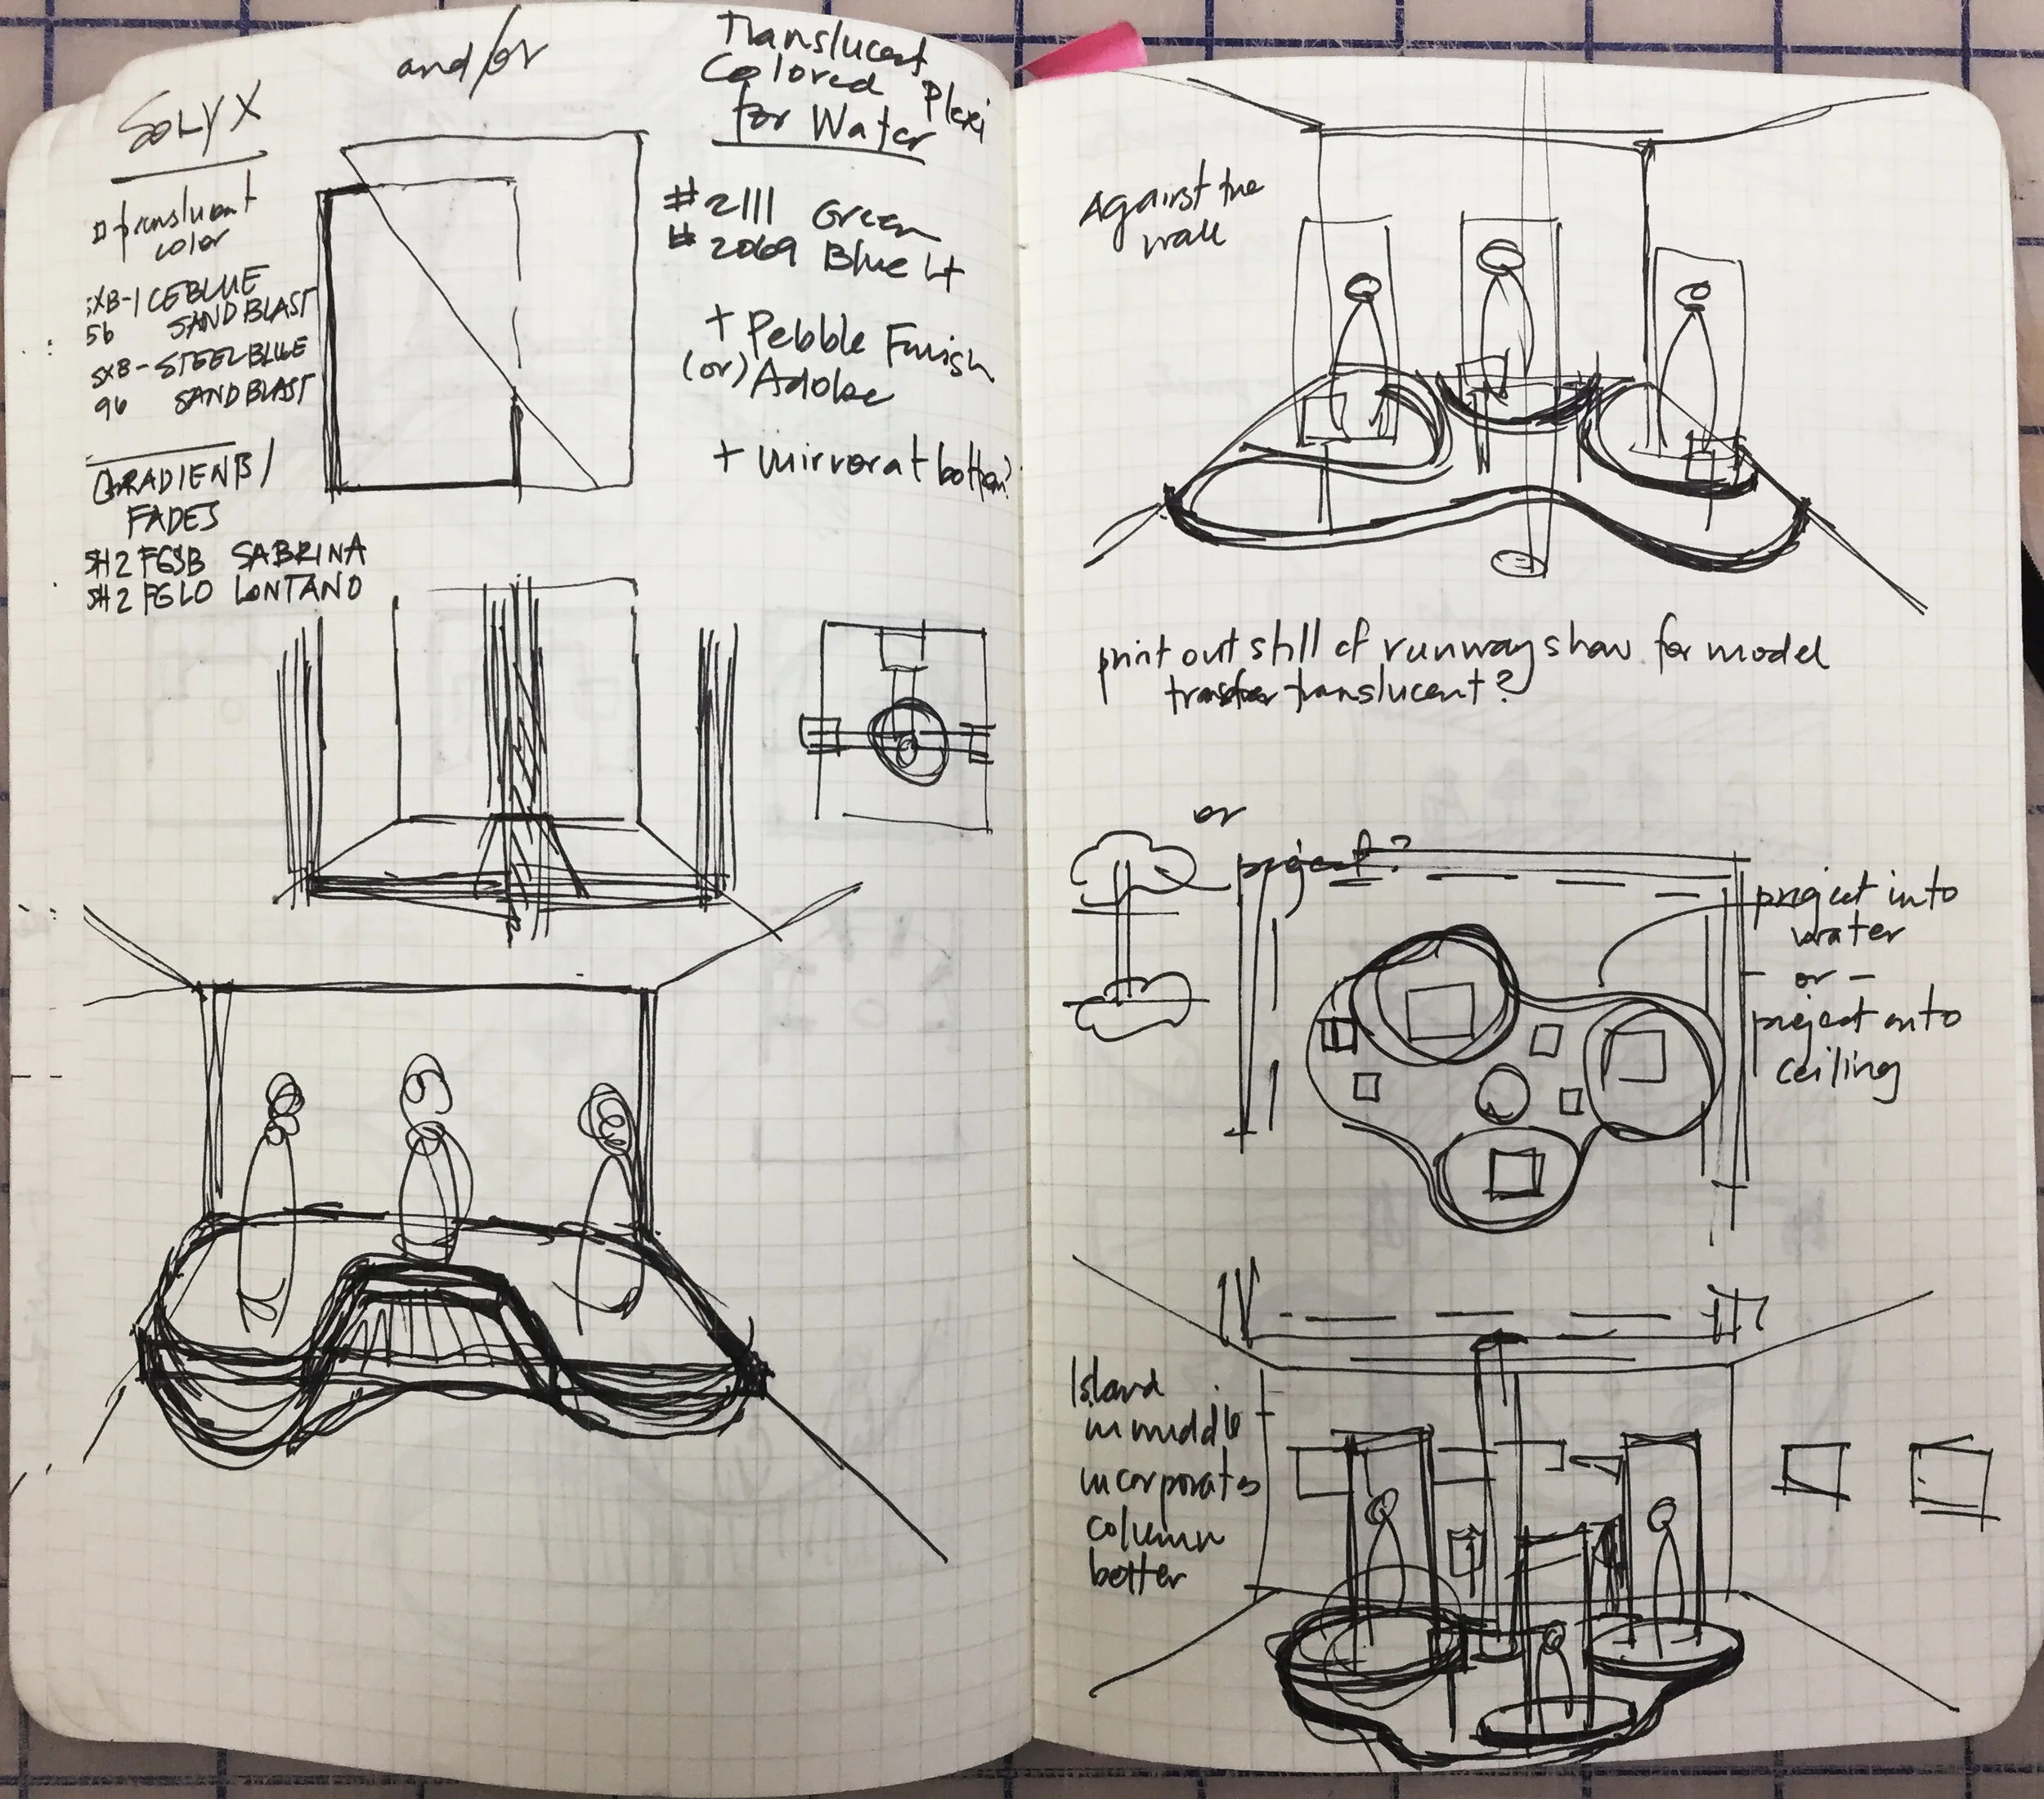 and/or
SOLYX
translucent
color
SXB-ICEBLUE
56 SANDBLAST
SXB-STEELBLUE
96 SANDBLAST
GRADIENTS/
FADES
SH2FGSB SABRINA
SH2FGLO LONTANO
Translucent
Colored Plexi
for Water
#2111 Green
#2069 Blue Lt
+ Pebble Finish
(or) Adobe
+ mirror at bottom?
Against the
wall
print out still of runway show for model
transfer translucent?
or
project?
project into
water
- or -
project onto
ceiling
Island
in middle
incorporates
column
better